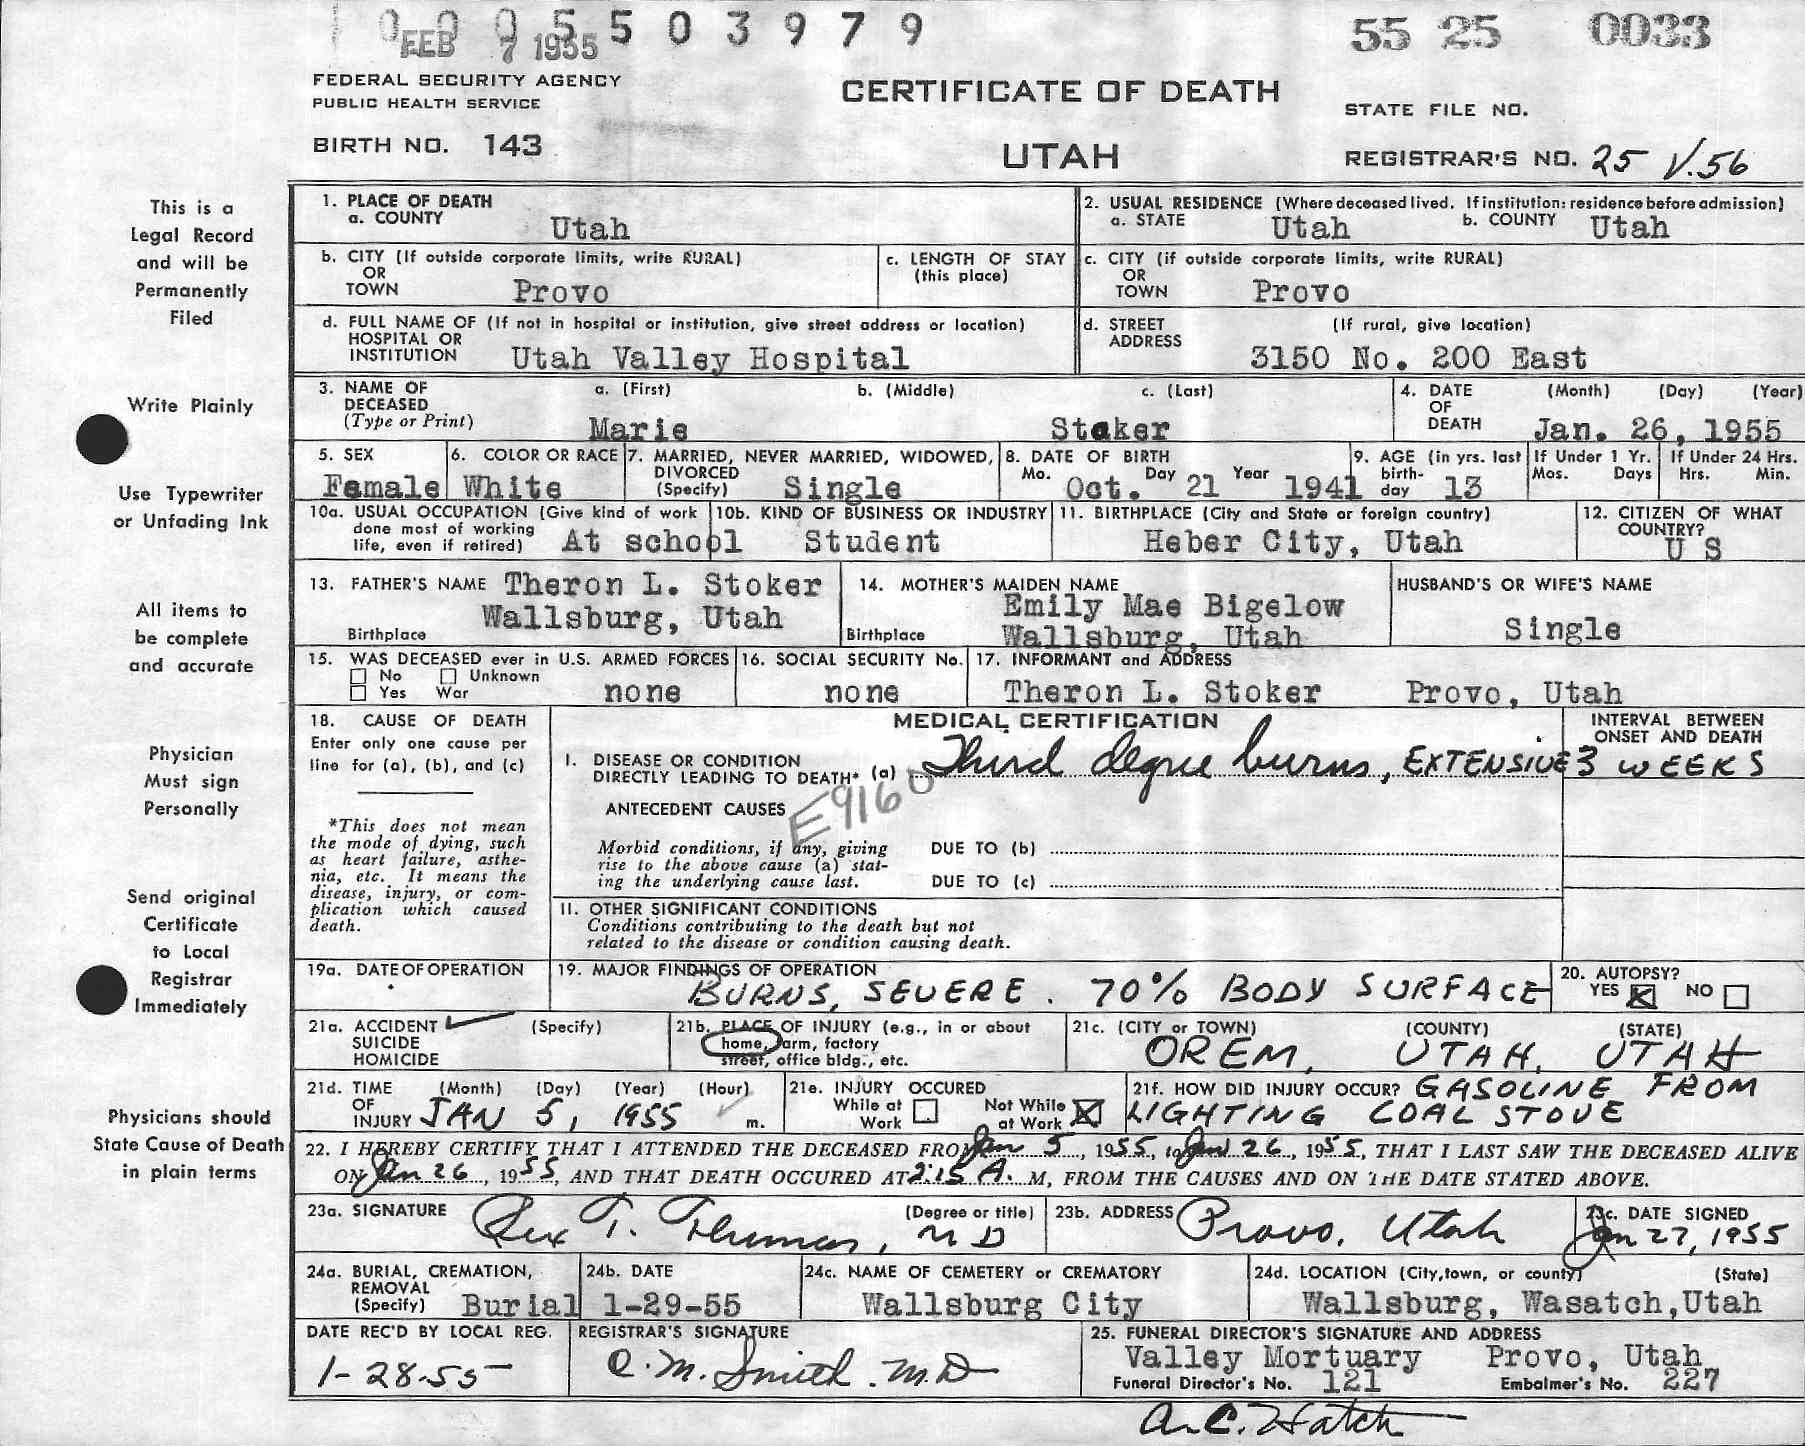 1 0 0 0 5 5 0 3 9 7 9
FEB 7 1955
55 25 0033
FEDERAL SECURITY AGENCY
PUBLIC HEALTH SERVICE
CERTIFICATE OF DEATH
STATE FILE NO.
BIRTH NO. 143
UTAH
REGISTRAR'S NO. 25 V.56
This is a
Legal Record
and will be
Permanently
Filed
Write Plainly
Use Typewriter
or Unfading Ink
All items to
be complete
and accurate
Physician
Must sign
Personally
Send original
Certificate
to Local
Registrar
Immediately
Physicians should
State Cause of Death
in plain terms
1. PLACE OF DEATH
a. COUNTY Utah
2. USUAL RESIDENCE (Where deceased lived. If institution: residence before admission)
a. STATE Utah b. COUNTY Utah
b. CITY (If outside corporate limits, write RURAL)
OR
TOWN Provo
c. LENGTH OF STAY
(this place)
c. CITY (if outside corporate limits, write RURAL)
OR
TOWN Provo
d. FULL NAME OF (If not in hospital or institution, give street address or location)
HOSPITAL OR
INSTITUTION Utah Valley Hospital
d. STREET (If rural, give location)
ADDRESS
3150 No. 200 East
3. NAME OF a. (First) b. (Middle) c. (Last)
DECEASED
(Type or Print) Marie Stoker
4. DATE (Month) (Day) (Year)
OF
DEATH Jan. 26, 1955
5. SEX
Female
6. COLOR OR RACE
White
7. MARRIED, NEVER MARRIED, WIDOWED,
DIVORCED
(Specify) Single
8. DATE OF BIRTH
Mo. Day Year
Oct. 21 1941
9. AGE (in yrs. last
birth-
day 13
If Under 1 Yr.
Mos. Days
If Under 24 Hrs.
Hrs. Min.
10a. USUAL OCCUPATION (Give kind of work
done most of working
life, even if retired) At school
10b. KIND OF BUSINESS OR INDUSTRY
Student
11. BIRTHPLACE (City and State or foreign country)
Heber City, Utah
12. CITIZEN OF WHAT
COUNTRY?
U S
13. FATHER'S NAME Theron L. Stoker
Wallsburg, Utah
Birthplace
14. MOTHER'S MAIDEN NAME
Emily Mae Bigelow
Birthplace Wallsburg, Utah
HUSBAND'S OR WIFE'S NAME
Single
15. WAS DECEASED ever in U.S. ARMED FORCES
No Unknown
Yes War none
16. SOCIAL SECURITY No.
none
17. INFORMANT and ADDRESS
Theron L. Stoker Provo, Utah
18. CAUSE OF DEATH
Enter only one cause per
line for (a), (b), and (c)
*This does not mean
the mode of dying, such
as heart failure, asthe-
nia, etc. It means the
disease, injury, or com-
plication which caused
death.
MEDICAL CERTIFICATION
INTERVAL BETWEEN
ONSET AND DEATH
I. DISEASE OR CONDITION
DIRECTLY LEADING TO DEATH* (a) Third degree burns, EXTENSIVE 3 WEEKS
E9160
ANTECEDENT CAUSES
Morbid conditions, if any, giving
rise to the above cause (a) stat-
ing the underlying cause last.
DUE TO (b)
DUE TO (c)
II. OTHER SIGNIFICANT CONDITIONS
Conditions contributing to the death but not
related to the disease or condition causing death.
19a. DATE OF OPERATION
19. MAJOR FINDINGS OF OPERATION
BURNS, SEVERE. 70% BODY SURFACE
20. AUTOPSY?
YES NO
21a. ACCIDENT (Specify)
SUICIDE
HOMICIDE
21b. PLACE OF INJURY (e.g., in or about
home, farm, factory
street, office bldg., etc.
21c. (CITY or TOWN) (COUNTY) (STATE)
OREM, UTAH, UTAH
21d. TIME (Month) (Day) (Year) (Hour)
OF
INJURY JAN 5, 1955 m.
21e. INJURY OCCURED
While at Not While
Work at Work
21f. HOW DID INJURY OCCUR? GASOLINE FROM
LIGHTING COAL STOVE
22. I HEREBY CERTIFY THAT I ATTENDED THE DECEASED FROM Jan 5, 1955, to Jan 26, 1955, THAT I LAST SAW THE DECEASED ALIVE
ON Jan 26, 1955, AND THAT DEATH OCCURED AT 2:15 A. M, FROM THE CAUSES AND ON THE DATE STATED ABOVE.
23a. SIGNATURE (Degree or title)
Rex T. Thomas, M D
23b. ADDRESS Provo, Utah
23c. DATE SIGNED
Jan 27, 1955
24a. BURIAL, CREMATION,
REMOVAL
(Specify) Burial
24b. DATE
1-29-55
24c. NAME OF CEMETERY or CREMATORY
Wallsburg City
24d. LOCATION (City, town, or county) (State)
Wallsburg, Wasatch, Utah
DATE REC'D BY LOCAL REG.
1-28-55
REGISTRAR'S SIGNATURE
O. M. Smith. M.D
25. FUNERAL DIRECTOR'S SIGNATURE AND ADDRESS
Valley Mortuary Provo, Utah
Funeral Director's No. 121 Embalmer's No. 227
A. C. Hatch